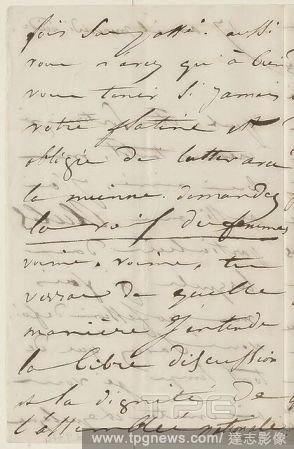 fois sur 
vous n'avez qu'à bien
vous tenir si jamais
votre platine est
obligée de lutter avec
la mienne. demandez
la voix des femmes
voisine, voisine, tu
verras de quelle
manière j'entends
la libre discussion
et la dignité de
l'assemblée nationale
www.tpgnews.com / 達志影像